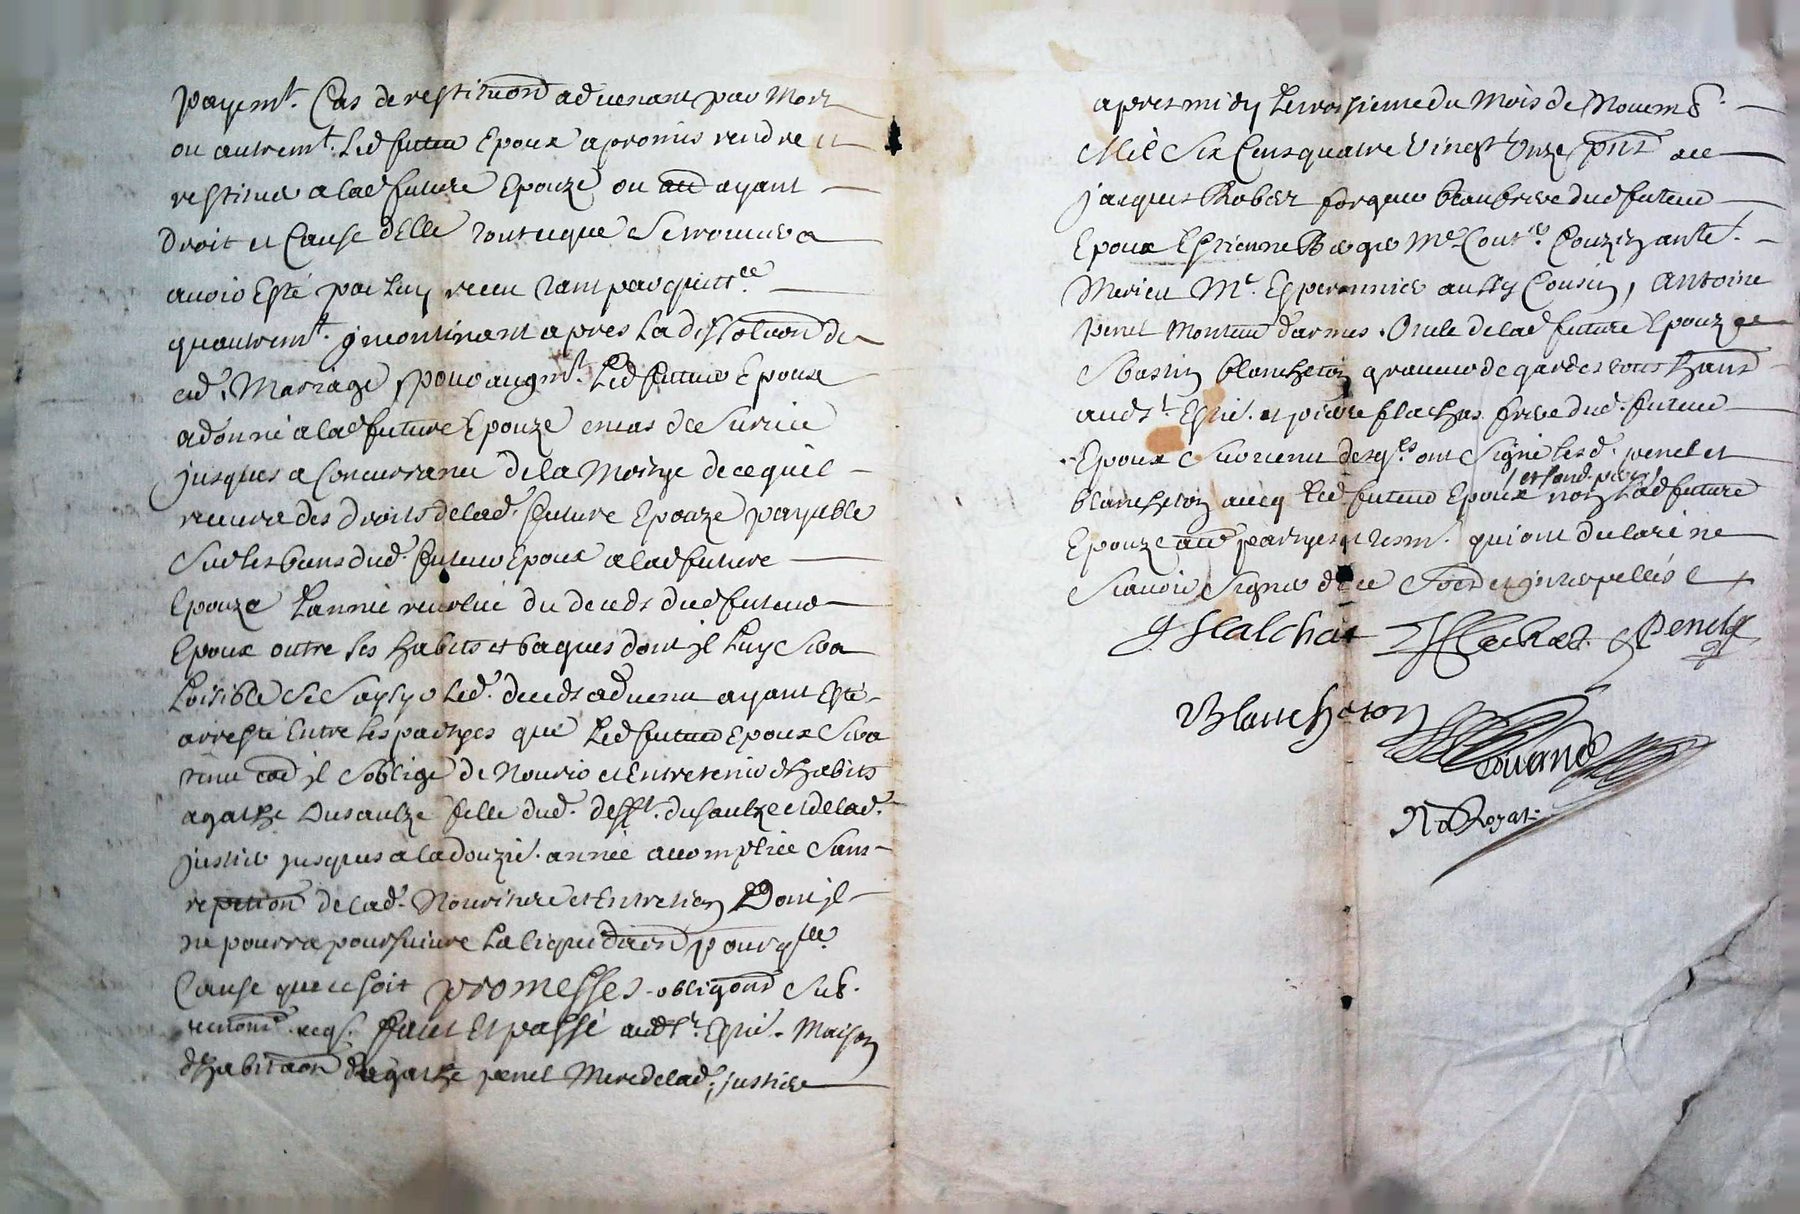 payemt. Cas de restituon advenant par Mort
ou autremt. Led futeur Epoux a promis rendre et
restituer a lad future Epouze ou aud ayant
droit et Cause d'Elle tout ce que se trouvera
avoir Esté par luy receu tant par quittce.
qu'autremt. jncontinant apres La dissoluon de
ced. Marriage, pour augmt. Led futeur Epoux
a donné a lad future Epouze en cas de Survie
jusques a Concurrance de la Moitye de ce quil
recevra des droits de lad. future Epouze payable
Sur les biens dud. futeur Epoux a lad future
Epouze L'année revolue du deceds dud futeur
Epoux outre ses habits et bagues dont jl Luy sera
Loisible se saysyr Led. deceds advenu ayant Esté
arresté Entre les partyes que Led futeur Epoux sera
tenu jl s'oblige de Nourir et Entretenir d'habits
agathe Dusauze fille dud. defft. dusauze et de lad.
justice jusques a la douzie. année accomplie sans
repetion de lad. Nourriture et Entretien Dont jl
ne pourra poursuivre La liquidaon pour qlle.
Cause que ce soit promesses obligons sub.
renonc. reqs. fait Et passé audt. St. Esne. Maison
d'habitaon d'agathe penel Mere de lad. justice
apres midy Le troisieme du Mois de Novemb.
Mil Six Cens quatre Vingt Unze pnts
jacques Robert forgeur beaufrere dud futeur
Epoux Estienne Me Cout. Couzin
Merieu Me. Esperonnier aussy Cousin, Antoine
penel Monteur d'armes. Oncle de lad future Epouze
Bastin blancheton graveur de gardes tous habts
audt. St. Esne. et pierre flachas frere dud. futeur
Epoux survenu desqls. ont signé lesd. penel et
blancheton avecq Led futeur Epoux non Lad future
Epouze partyes et tesm. qui ont declaré ne
Scavoir signer de ce Enquis et jnterpellés
J flachat Penel
Blancheton